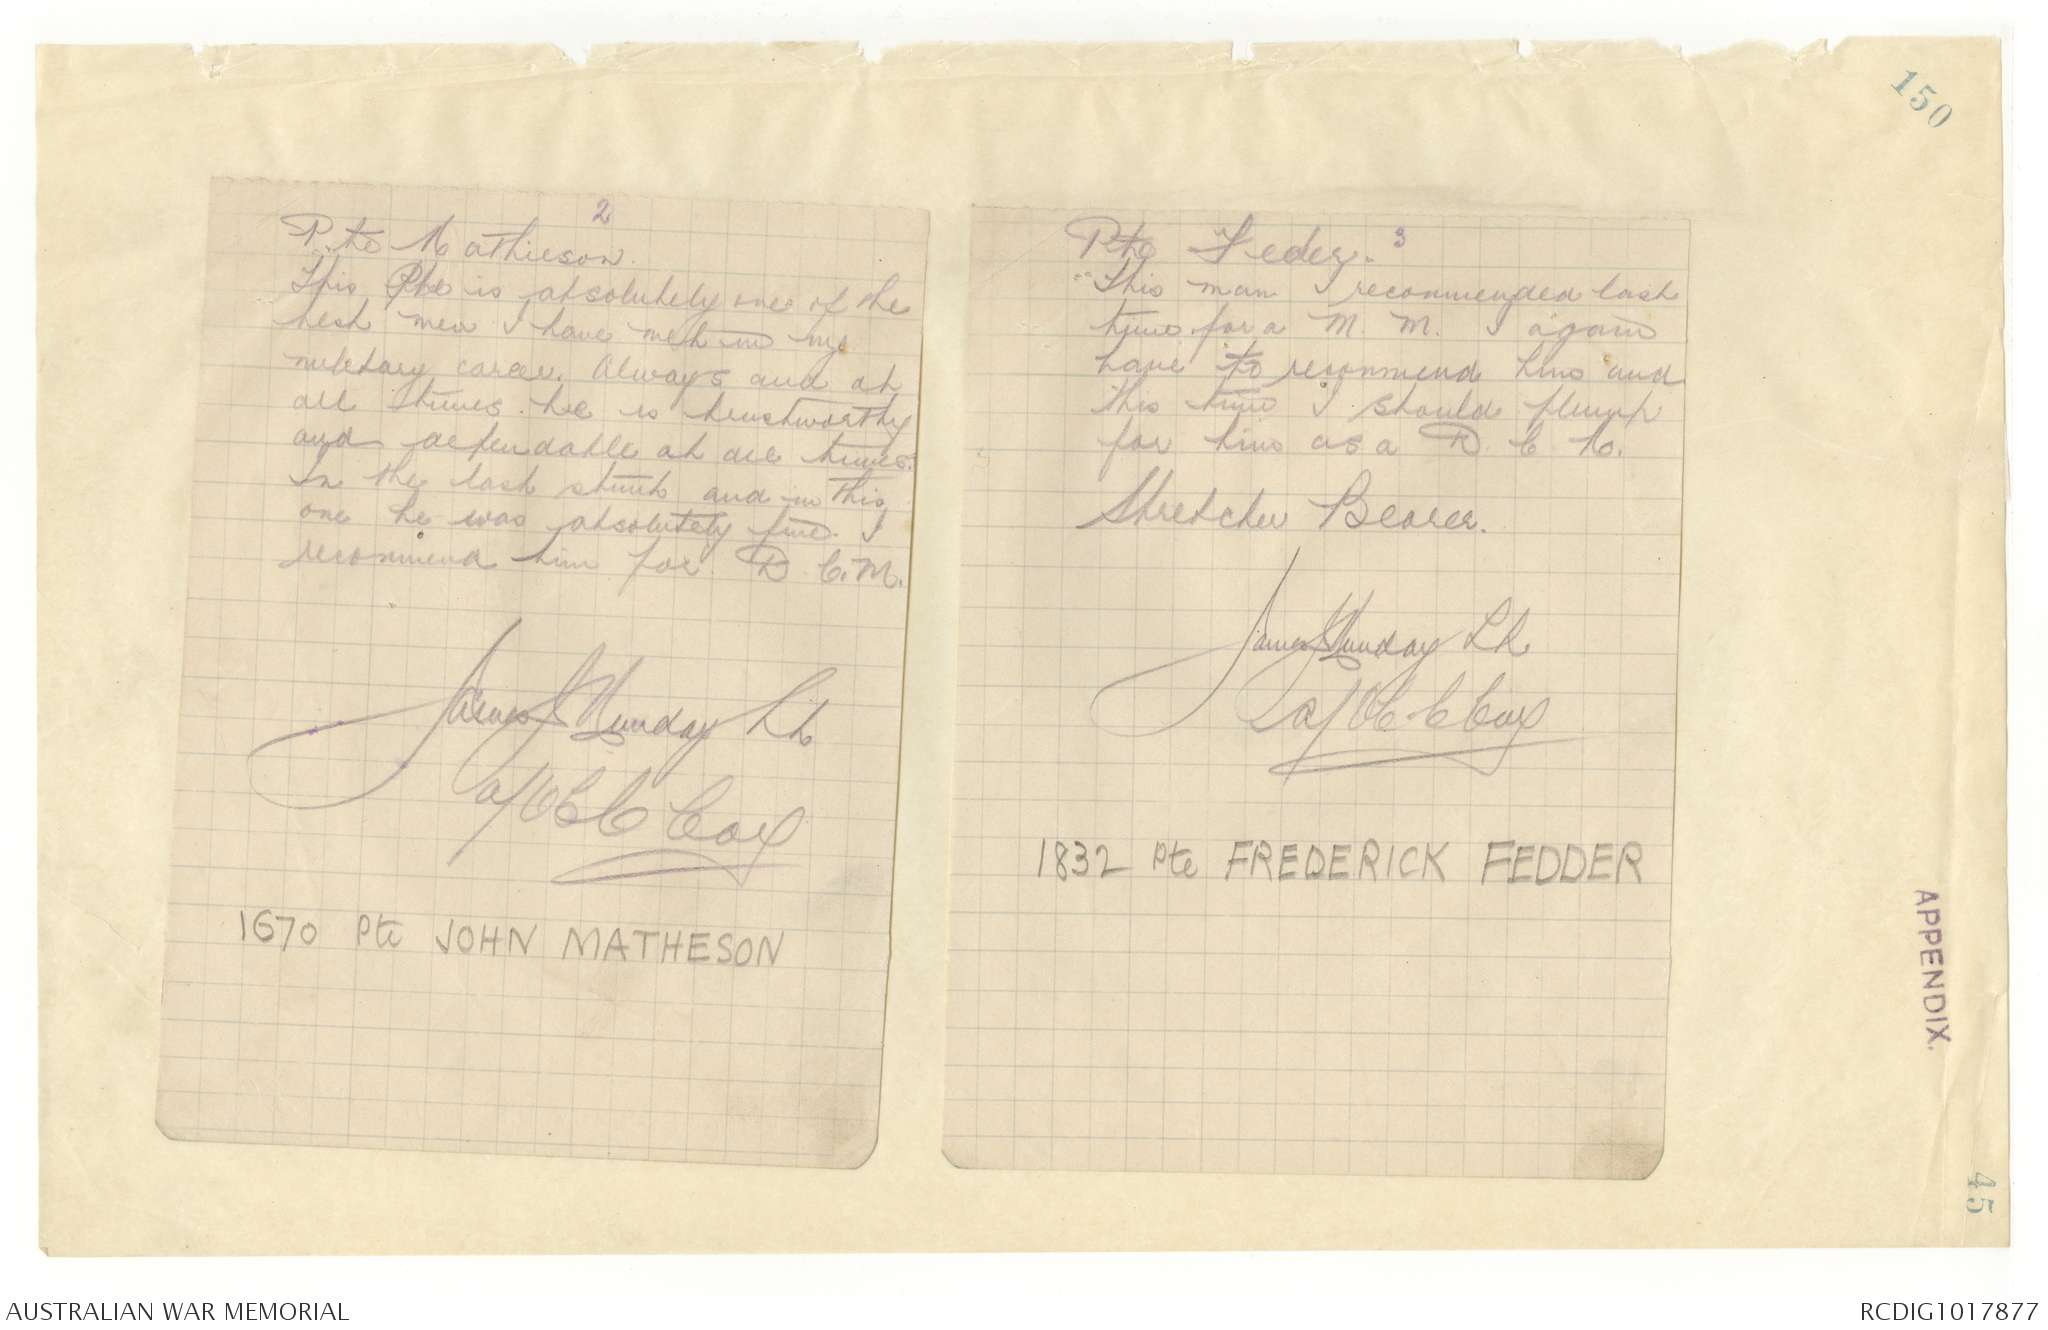 150
2
Pte Mathieson.
This Pte is absolutely one of the
best men I have met in my
military career. Always and at
all times he is trustworthy
and dependable at all times.
In the last stunt and in this
one he was absolutely fine. I
recommend him for D.C.M.
James S Munday Lt
a/O C C Coy
1670 Pte JOHN MATHESON
Pte Feder. 3
"This man I recommended last
time for a M. M. I again
have to recommend him and
this time I should plump
for him as a D. C. M.
Stretcher Bearer.
James S Munday Lt.
a/O C C Coy
1832 Pte FREDERICK FEDDER
APPENDIX.
45
AUSTRALIAN WAR MEMORIAL
RCDIG1017877